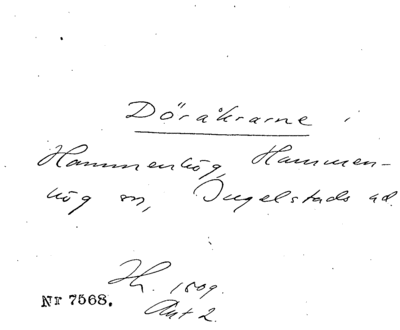 Döråkrarne i
Hammenhög, Hammen-
hög sn, Ingelstads hd.
Hh. 1509.
Nr 7568.
Akt 2.